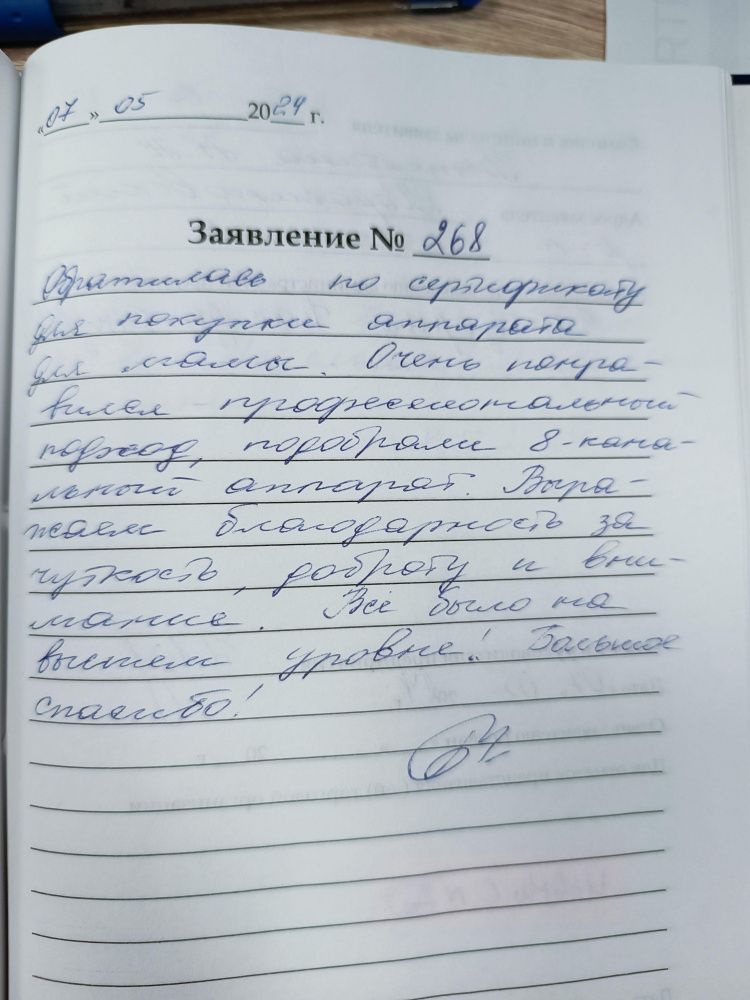 «07» 05 2024 г.
Заявление № 268
Обратилась по сертификату
для покупки аппарата
для мамы. Очень понра-
вился профессиональный
подход, подобрали 8-кана-
льный аппарат. Выра-
жаем благодарность за
чуткость, доброту и вни-
мание. Всё было на
высшем уровне! Большое
спасибо!